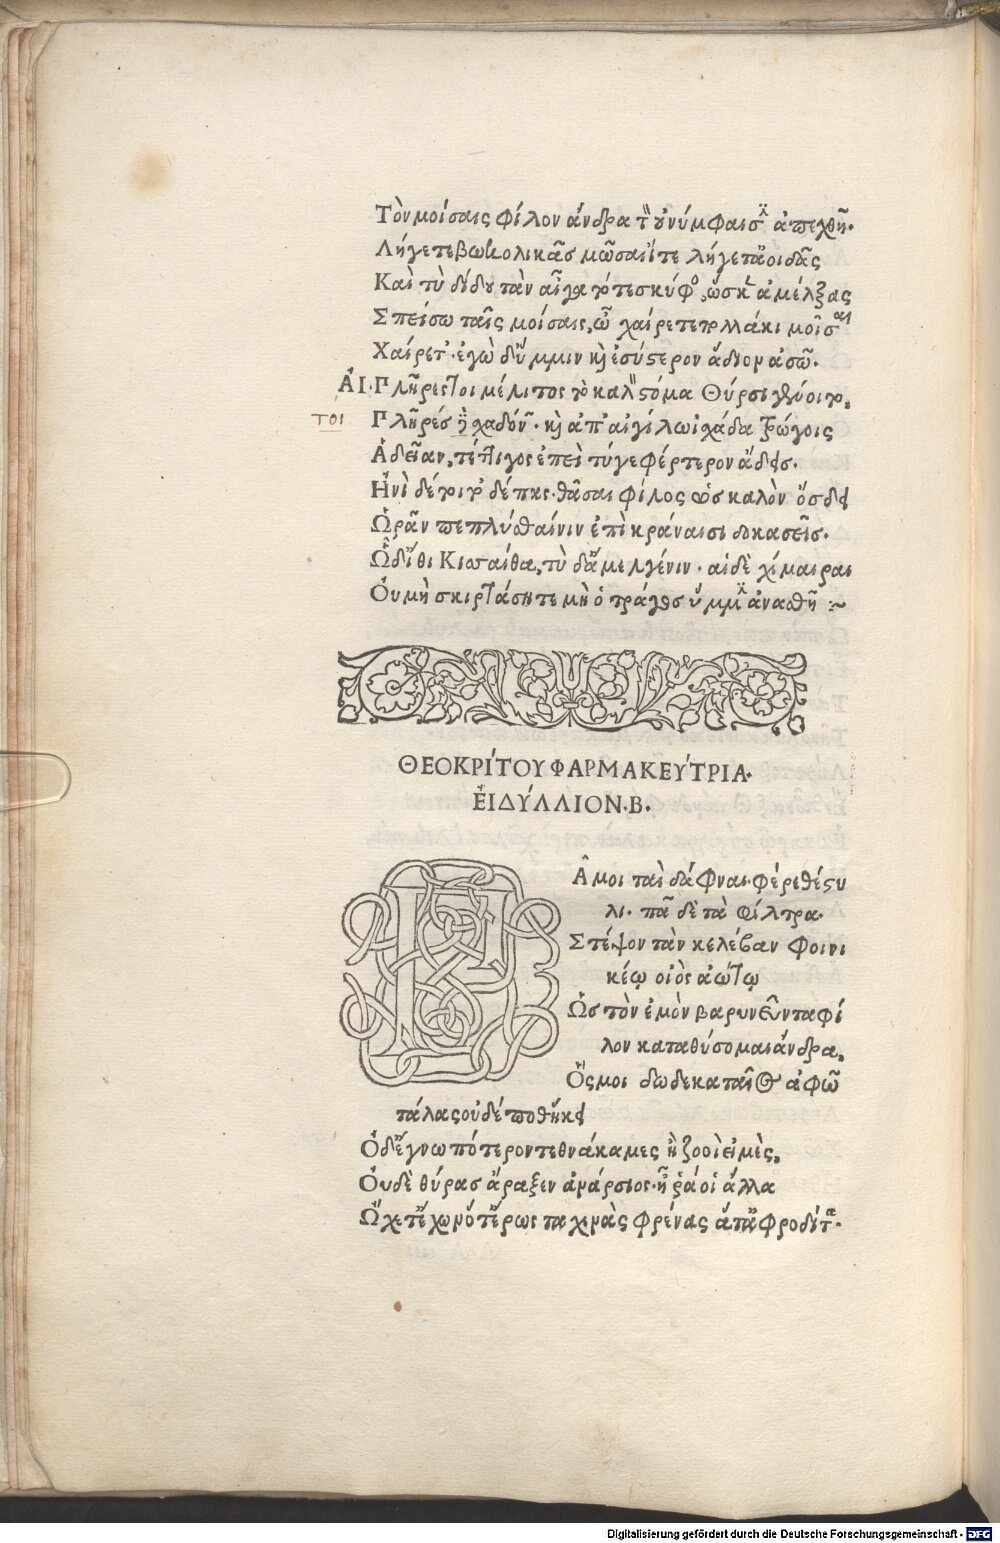 Τὸν μοίσαις φίλον ἄνδρα τὸν οὐ νύμφαισιν ἀπεχθῆ.
Λήγετε βωκολικᾶς μῶσαι ἴτε λήγετ ἀοιδᾶς
Καὶ τὺ δίδου τὰν αἶγα τό τε σκύφος, ὥς κεν ἀμέλξας
Σπείσω ταῖς μοίσαις, ὦ χαίρετε πολλάκι μοῖσαι
Χαίρετ. ἐγὼ δ ὔμμιν καὶ ἐσύστερον ἅδιον ἀσῶ.
ΑΙ. Πλῆρές τοι μέλιτος τὸ καλὸν στόμα Θύρσι γένοιτο,
τοι
Πλῆρές
καὶ ἀπ αἰγίλω ἰσχάδα τρώγοις
Ἁδεῖαν, τέττιγος ἐπεὶ τύγε φέρτερον ᾄδεις.
Ἠνὶ δέ τοι τὸ δέπας. θᾶσαι φίλος ὡς καλὸν ὄσδει
Ὡρᾶν πεπλύσθαι νιν ἐπὶ κράναισι δοκασεῖς.
Ὧδ ἴθι Κισσαίθα, τὺ δ ἄμελγέ νιν. αἱ δὲ χίμαιραι
Οὐ μὴ σκιρτάσητε μὴ ὁ τράγος ὔμμιν ἀναστῆ :~
ΘΕΟΚΡΊΤΟΥ ΦΑΡΜΑΚΕΎΤΡΙΑ.
ἘΙΔΎΛΛΙΟΝ.Β.
Π
Α͂ μοι ταὶ δάφναι. φέρε θέστυ
λι. πᾶ δὲ τὰ φίλτρα.
Στέψον τὰν κελέβαν φοινι
κέῳ οἰὸς ἀώτῳ
Ὡς τὸν ἐμὸν βαρυνεῦντα φί
λον καταθύσομαι ἄνδρα,
Ὅς μοι δωδεκαταῖος ἀφ ῶ
τάλας οὐδέποθ ἥκει
Οὐδ ἔγνω πότερον τεθνάκαμες ἢ ζοοὶ εἰμὲς,
Οὐδὲ θύρας ἄραξεν ἀνάρσιος. ἦ ῥά οἱ ἄλλα
Ὤχετ ἔχων ὅ τ ἔρως ταχινὰς φρένας ἅ τ ἀφροδίτα.
Digitalisierung gefördert durch die Deutsche Forschungsgemeinschaft - DFG